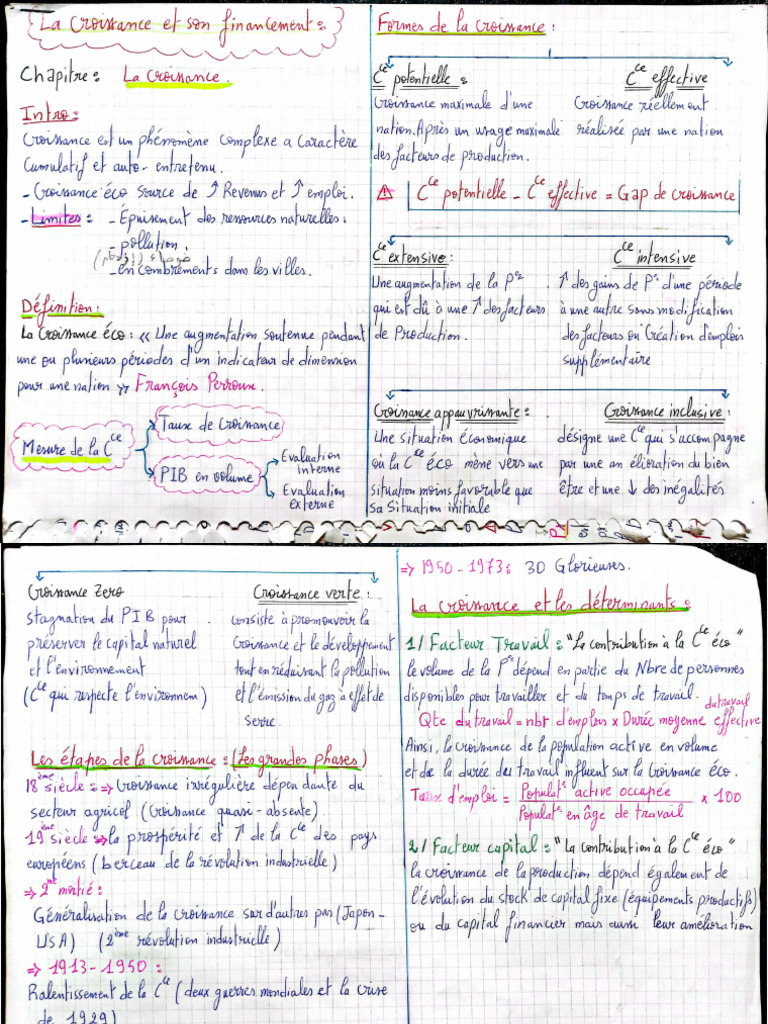 La Croissance et son financement :
Chapitre : La Croissance.
Intro :
Croissance est un phénomène complexe a caractère
Cumulatif et auto-entretenu.
- Croissance éco source de ↑ Revenus et ↑ emploi.
- Limites : - Épuisement des ressources naturelles.
- pollution.
- en combrements dans les villes.
Définition :
La Croissance éco : « Une augmentation soutenue pendant
une ou plusieurs périodes d'un indicateur de dimension
pour une nation » François Perroux.
Mesure de la Cce
Taux de Croissance
PIB en volume
Evaluation
interne
Evaluation
externe
Formes de la Croissance :
Cce potentielle :
Croissance maximale d'une
nation. Après un usage maximale
des facteurs de production.
Cce effective
Croissance réellement
réalisée par une nation
⚠ Cce potentielle - Cce effective = Gap de croissance
Cce extensive :
Une augmentation de la Pce
qui est dû à une ↑ des facteurs
de Production.
Cce intensive
↑ des gains de Pce d'une période
à une autre sans modification
des facteurs ou Création d'emplois
supplémentaire
Croissance appauvrissante :
Une situation économique
où la Cce éco mène vers une
situation moins favorable que
sa situation initiale
Croissance inclusive :
désigne une Cce qui s'accompagne
par une an élioration du bien
être et une ↓ des inégalités
Croissance Zero
stagnation du PIB pour
préserver le capital naturel
et l'environnement
(Cce qui respecte l'environnem)
Croissance verte :
consiste à promouvoir la
Croissance et le développement
tout en réduisant la pollution
et l'émission du gaz à effet de
serre.
Les étapes de la croissance : (Les grandes phases)
18ème siècle : => Croissance irrégulière dépendante du
secteur agricol (Croissance quasi-absente).
19ème siècle => la prospérité et ↑ de la Cce des pays
européens (berceau de la révolution industrielle)
=> 2ème moitié :
Généralisation de la croissance sur d'autres pays (Japon-
USA) (2ème révolution industrielle)
=> 1913-1950 :
Ralentissement de la Cce (deux guerres mondiales et la crise
de 1929)
=> 1950-1973 : 30 Glorieuses.
La croissance et les déterminants :
1/ Facteur Travail : "La contribution à la Cce éco"
le volume de la Pce dépend en partie du Nbre de personnes
disponibles pour travailler et du temps de travail.
du travail
Qte du travail = nbr d'emplois x Durée moyenne effective
Ainsi, la croissance de la population active en volume
et de la durée du travail influent sur la Croissance éco.
Taux d'emploi = Populat° active occupée / Populat° en âge de travail x 100
2/ Facteur capital : "La contribution à la Cce éco"
la croissance de la production dépend également de
l'évolution du stock de capital fixe (équipements productifs)
ou du capital financier mais aussi leur amélioration